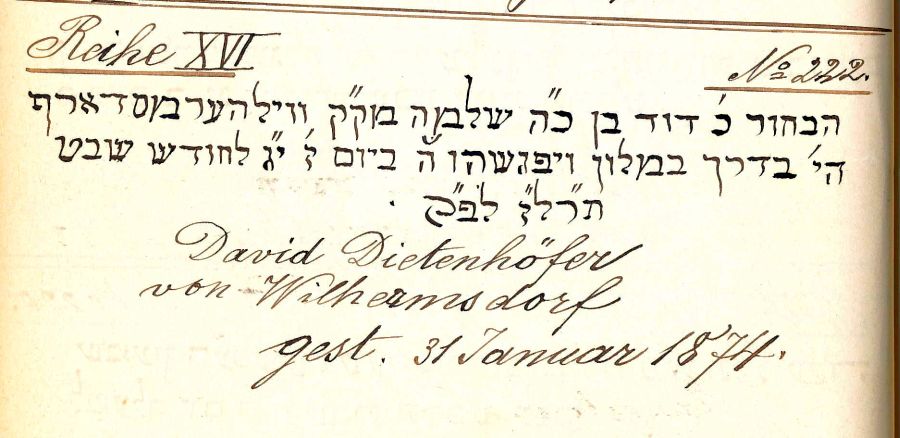 Reihe XVI
No 222.
הבחור כ' דוד בן כ"ה שלמה מק"ק ווילהערמסדארף
הי' בדרך במלון ויפגשהו ה' ביום ז' י"ג לחודש שבט
תרל"ז לפ"ק .
David Dietenhöfer
von Wilhermsdorf
gest. 31 Januar 1874.